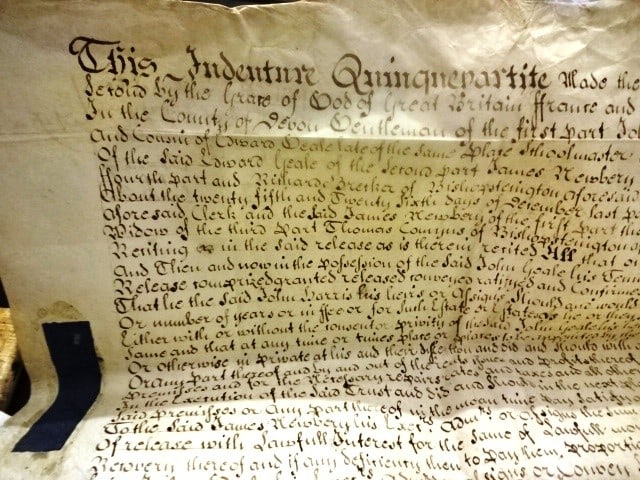 This Indenture Quinquepartite Made the
Second by the Grace of God of Great Britain ffrance and
In the County of Devon Gentleman of the first part Joh
And Cousin of Edward Geale late of the same place Schoolmaster
Of the Said Edward Geale of the Second part James Newbery
ffourth part and Richard of Bishopsteington aforesaid
About the twenty fifth and Twenty Sixth days of December last p
Aforesaid Clerk and the Said James Newbery of the first part the
Widow of the third part Thomas Comyns of Bishopsteington
Reciting in the said release as is therein recited All that
And Then and now in the possession of the Said John Geale his Ten
Release comprized granted released conveyed ratifyed and Confirmed
That he the Said John Harris his heirs or Assigns Should and would
Or number of years or in ffee or for Such Estate or Estates as he or they
Either with or without the consent or privity of the said John Geale his
Same and that at any time or times place or places to be
Or otherwise in private at his and their discretion and did and Should with
Or any part thereof and by and out of the rents and profits
premises and for the Necessary repairs rates and taxes and all other
In the Execution of the Said Trust and did and Should in the next place
Said premisses or Any part thereof in the mean time pay Satisfy
To the Said James Newbery his Exe's Adm's or Assigns the Sum
Of release with Lawfull Interest for the Same of Lawfull
Newbery thereof and if any deficiency then to pay them proportion
Assigns or Convey